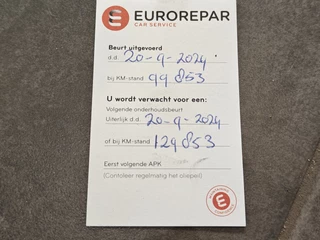 EUROREPAR
CAR SERVICE
Beurt uitgevoerd
d.d. 20-9-2024
bij KM-stand 99853
U wordt verwacht voor een:
Volgende onderhoudsbeurt
Uiterlijk d.d. 20-9-2024
of bij KM-stand 129853
Eerst volgende APK
(Controleer regelmatig het oliepeil)